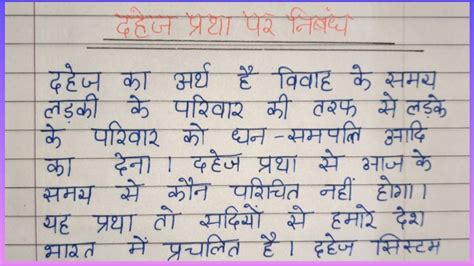 दहेज प्रथा पर निबंध
दहेज का अर्थ है विवाह के समय
लड़की के परिवार की तरफ से लड़के
के परिवार को धन-सम्पत्ति आदि
का देना। दहेज प्रथा से आज के
समय से कौन परिचित नहीं होगा।
यह प्रथा तो सदियों से हमारे देश
भारत में प्रचलित है। दहेज सिस्टम